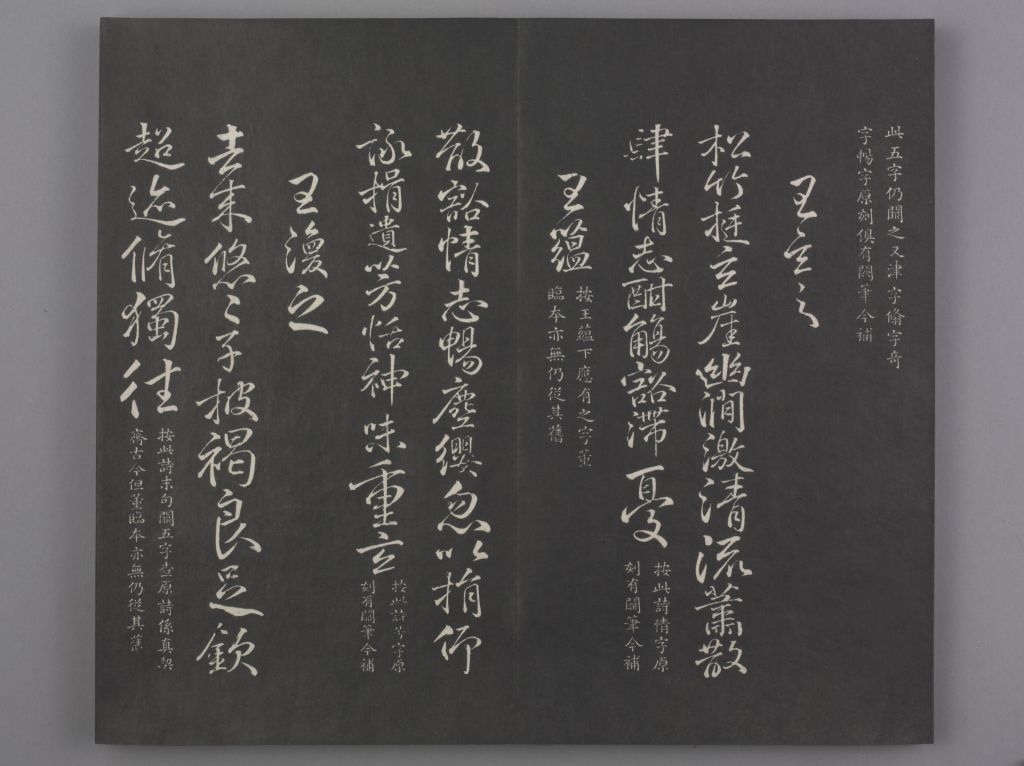 此五字仍闕之又津字翛字奇
字暢字原刻俱有闕筆今補
王玄之
松竹挺玄崖幽澗激清流蕭散
肆情志酣觴豁滯憂
按此詩情字原
刻有闕筆今補
王蘊
按王蘊下應有之字董
臨本亦無仍從其舊
散豁情志暢塵纓忽以捐仰
詠挹遺芳恬神味重玄
按此詩芳字原
刻有闕筆今補
王渙之
去來悠〻子披褐良足欽
超迹脩獨往
按此詩末句闕五字查原詩係真契
齊古今但董臨本亦無仍從其舊